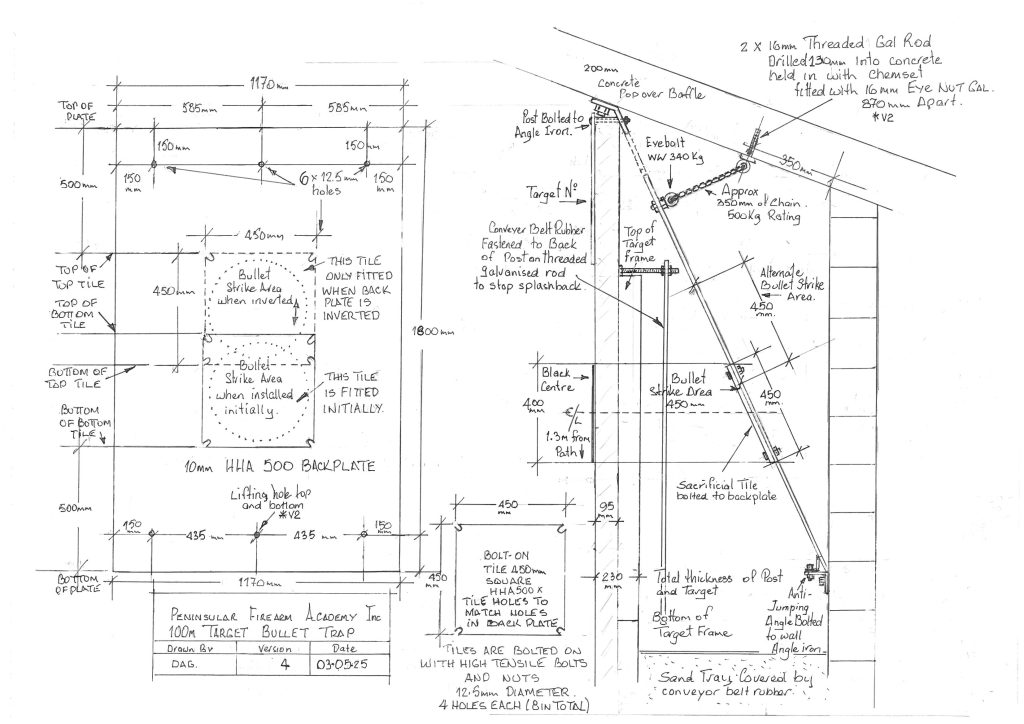 1170mm
585mm
585mm
TOP OF
PLATE
150mm
150mm
150
mm
150
mm
6 x 12.5mm
holes
500mm
450mm
TOP OF
TOP TILE
TOP OF
BOTTOM
TILE
450mm
Bullet
Strike Area
when inverted
THIS TILE
ONLY FITTED
WHEN BACK
PLATE IS
INVERTED
1800mm
BOTTOM OF
TOP TILE
Bullet
Strike Area
when installed
initially.
THIS TILE
IS FITTED
INITIALLY.
BOTTOM
OF BOTTOM
TILE
10mm HHA 500 BACKPLATE
500mm
Lifting hole top
and bottom
*V2
150
mm
435 mm
435 mm
150
mm
BOTTOM
OF PLATE
1170mm
PENINSULAR FIREARM ACADEMY Inc
100m TARGET BULLET TRAP
Drawn By
Version
Date
DAG.
4
03-05-25
450
mm
450
mm
BOLT-ON
TILE 450mm
SQUARE
HHA500 x
TILE HOLES TO
MATCH HOLES
IN BACK PLATE
TILES ARE BOLTED ON
WITH HIGH TENSILE BOLTS
AND NUTS
12.5mm DIAMETER.
4 HOLES EACH (8 IN TOTAL)
2 X 16mm Threaded Gal Rod
Drilled 130mm Into concrete
held in with Chemset
fitted with 16mm Eye NUT GAL.
870mm Apart.
*V2
200mm
Concrete
Popover Baffle
Post Bolted to
Angle Iron.
Eyebolt
WW 340Kg
350mm
Approx
350mm of Chain.
500Kg Rating
Target No
Conveyer Belt Rubber
Fastened to Back
of Post on threaded
galvanised rod
to stop splashback.
Top of
Target
frame
Alternate
Bullet Strike
Area.
450
mm.
Black
Centre
400
mm
C/L
1.3m from
Path
Bullet
Strike Area
450mm
450
mm.
Sacrificial Tile
bolted to backplate
95
mm
230
mm
Total thickness of Post
and Target
Bottom of
Target Frame
Anti-
Jumping
Angle Bolted
to wall
Angle iron.
Sand Tray Covered by
conveyor belt rubber.